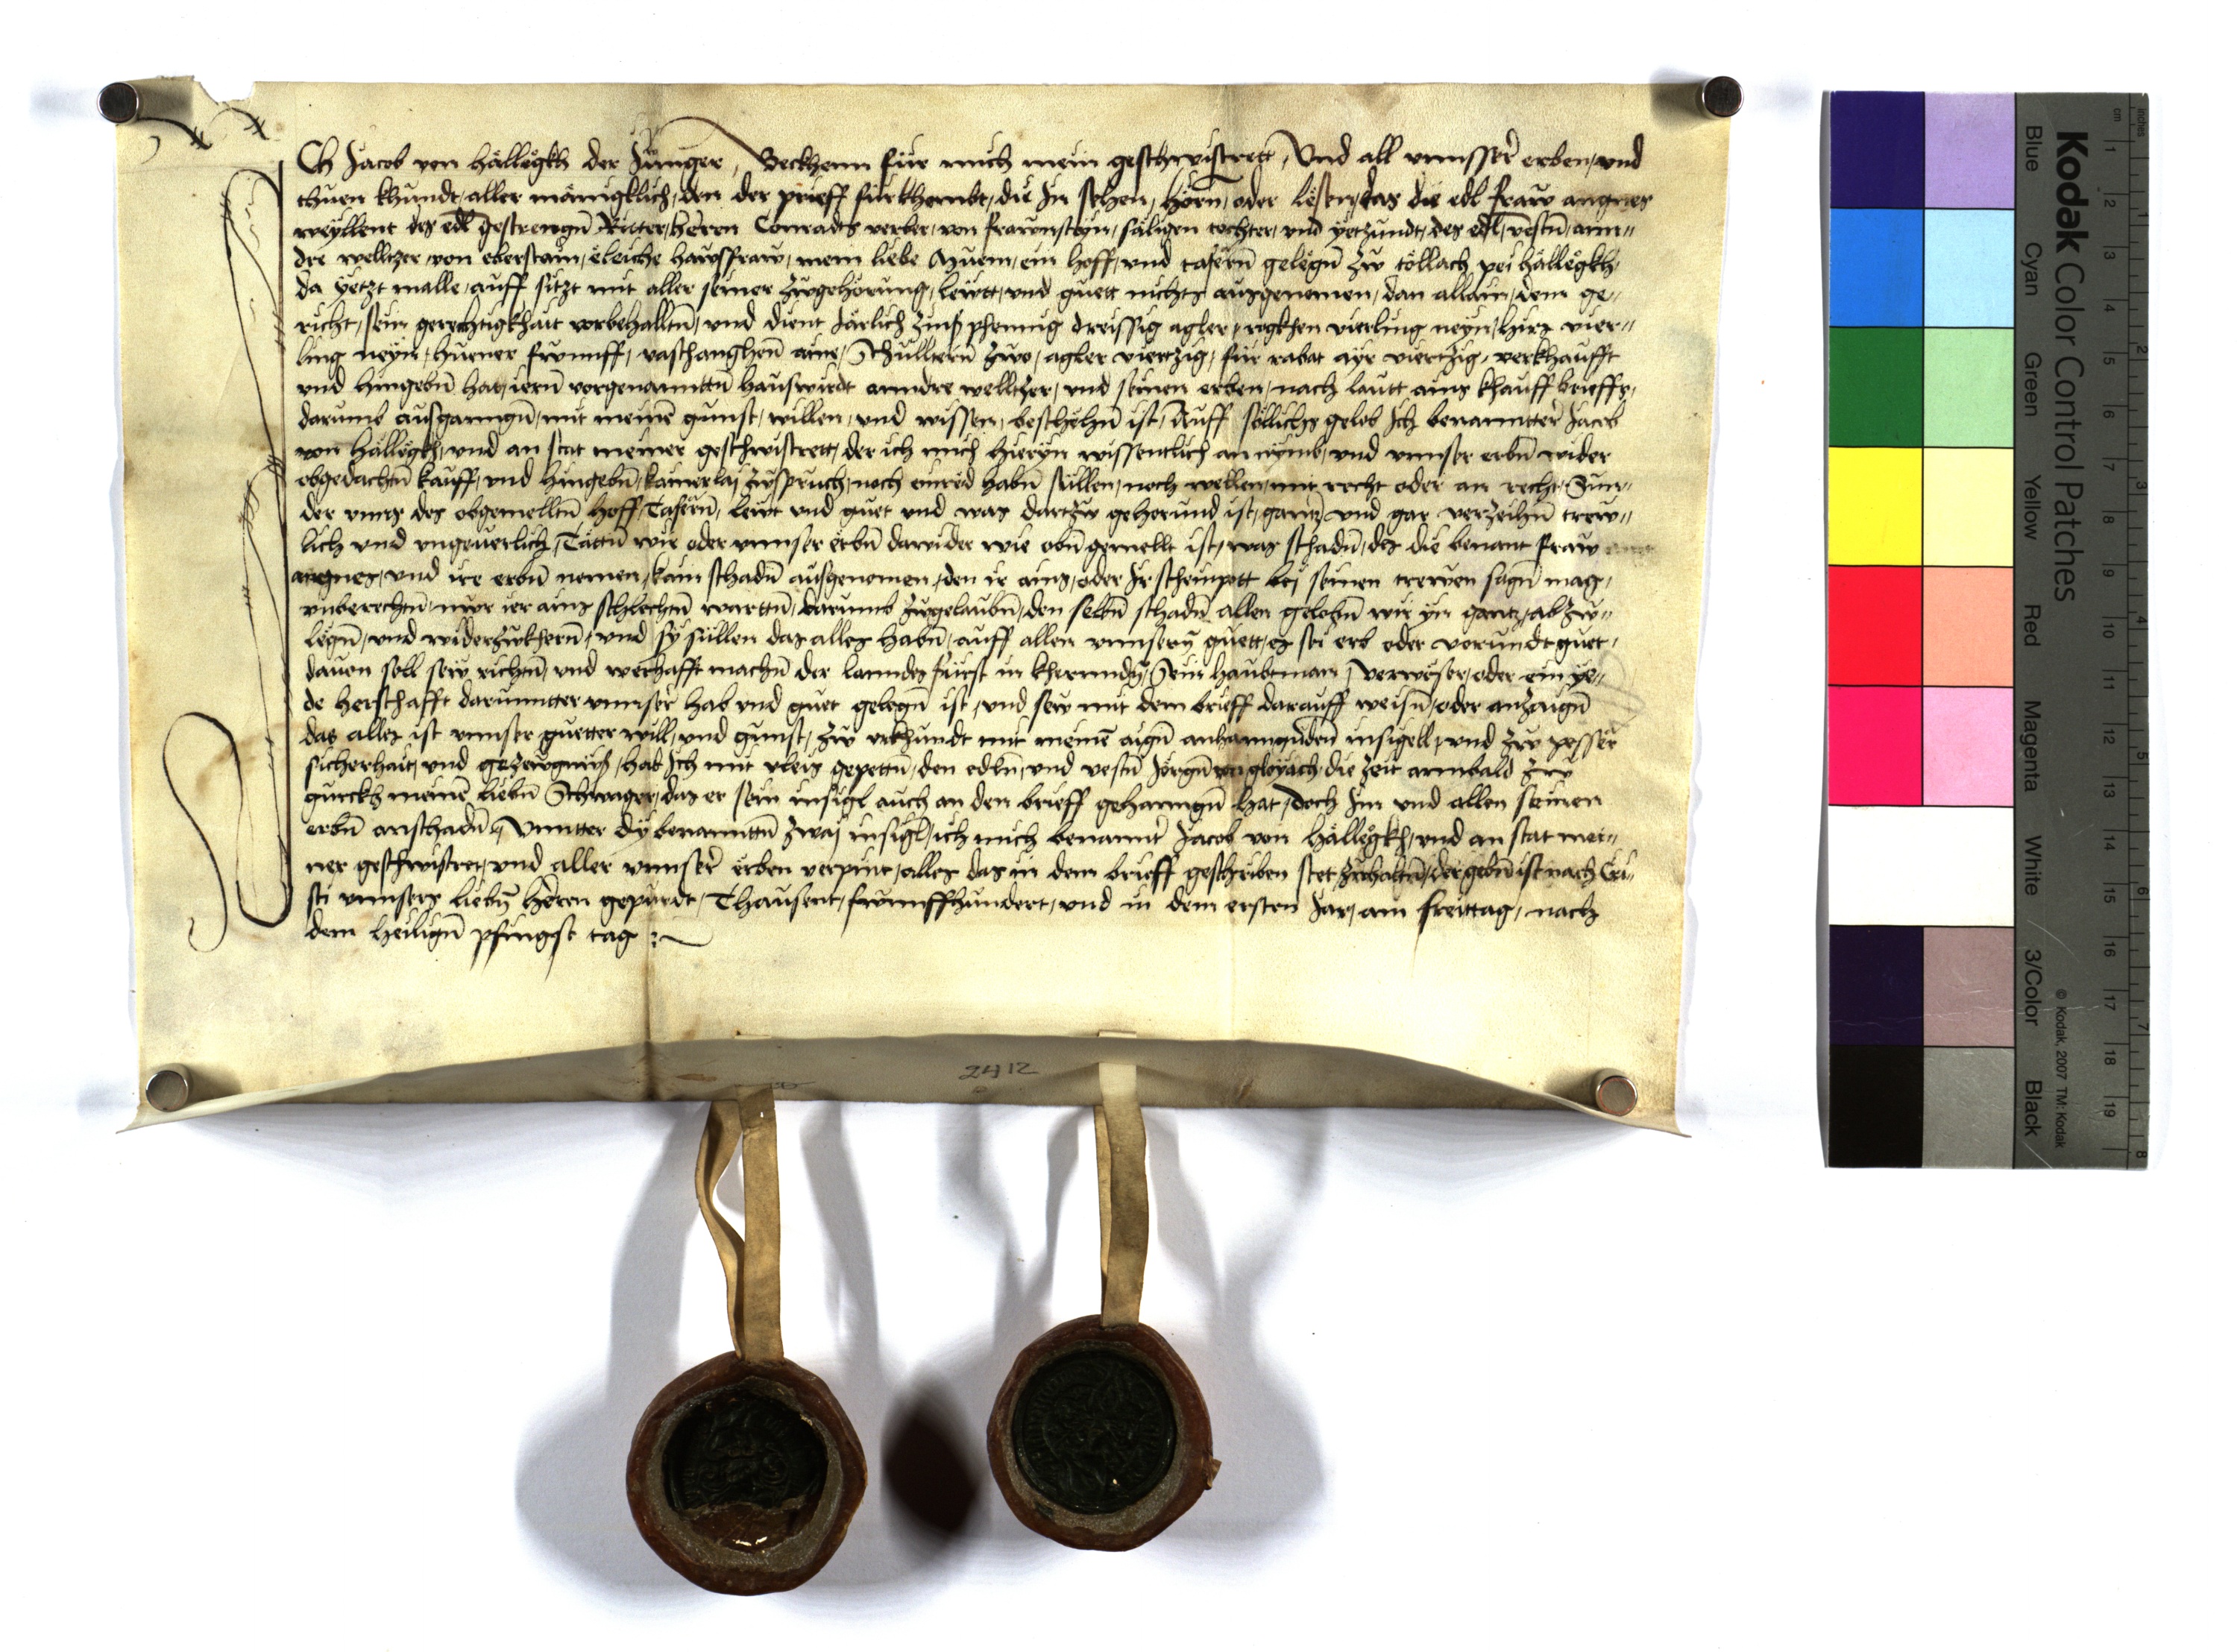 Ich Jacob von Hällegkh der Jünger, Beckhenn für mich mein geschwistrett, Und all unnsser erben, und
thuen khundt, aller mänigklich, den der prieff fürkhembt, die In sehen, hörn, oder lesen, das die edl fraw angnes
weyllent des edl gestrengn Ritter, herrn Conradts verber, von frawnstayn, säligen tochter, und yetzundt, des edl, vestn, ann„
dre welltzer, von eberstain, eleiche hawsfraw, mein liebe Muem, ein hoff, und tafern gelegn zw töllach pei hällegkh,
da yetzt malle, auff sitzt mit aller seiner zwgehörung, lewtt, und guett nichts ausgenomen, dan allain, dem ge„
richt, sein gerechtigkhait vorbehalltn, und dient Järlich zinß pfennig dreissig agler, rogkhen vierling neyn, hirs vier„
ling neyn, huener fwnnff, vaschanghen aine, Schulltern zwo, agler viertzig, für rabat ayr viertzig, verkhaufft
und hingebn hat, iern vorgenanntn hauswirdt anndre welltzer, und seinen erben, nach lautt ains khauff brieffs,
darumb ausganngn, mit meinem gunst, willen, und wissen, beschehn ist, Auff sollichs gelob Ich benannter Jacob
von hällegkh, und an stat meiner geschwistrett, der ich mich hieryn wissentlich an nymb, und unnser erbn wider
obgedachtn kauff, und hingebn, kainerlaj zwspruch, noch einred habn sullen, noch wellen, mit recht oder an recht, Sun„
der unns des obgemelltn hoff, Tafern, lewt und guet und was dartzw gehorund ist, gantz und gar verzeihn trew„
lich und ungeuerlich, Tättn wir oder unnser erbn dawider wie obn gemellt ist, was schadn, des die benant fraw
angnes, und ire erbn nemen, kain schadn ausgenomen, den ir ains, oder Ir scheinpott bej seinen trewen sagn mag,
unberechtn, nur ier ains schlechtn wartn, darumb zwgelaubn, den selbn schadn allen gelobn wir yn gantz, ab zw„
legn, und widerzwkhern, und sy sullen das alles habn, auff allen unnsern guett, es sei erb oder varundt guet,
dauon soll sew richtn, und werhafft machn der lanndes fürst in kherndn, Sein haubtman, verweser, oder ein ye„
de herschafft darunntter unnser hab und guet gelegn ist, und sew mit dem brieff darauff weisn, oder anzaign
das alles ist unnser guetter will, und gunst, zw urkhundt mit meinem aign anhanngunden insigell, und zw pesser
sicherhait, und gezewgnuß, hab Ich mit vleis gepettn, den edln, und vestn Jörgn von gloyach die zeit ambald zw
gurckh meinen liebn Schwager, das er sein insigl auch an den brieff gehanngn hat, doch Im und allen seinen
erbn anschadn, Unntter dy benanntn zwaj insigl, ich mich benannter Jacob von hällegkh, und an stat mei„
ner geschwistrett, und aller unnser erben verpint, alles das in dem brieff geschriben stet zwhaltn, der gebn ist nach Cri„
sti unnsers liebn herrn gepurdt, Thausent, fwnnffhundert, und in dem ersten Jar, am freittag, nach
dem heilign pfingst tag
2412
Kodak Color Control Patches
© Kodak, 2007 TM: Kodak
Blue Cyan Green Yellow Red Magenta White 3/Color Black
inches 1 2 3 4 5 6 7 8
cm 1 2 3 4 5 6 7 8 9 10 11 12 13 14 15 16 17 18 19